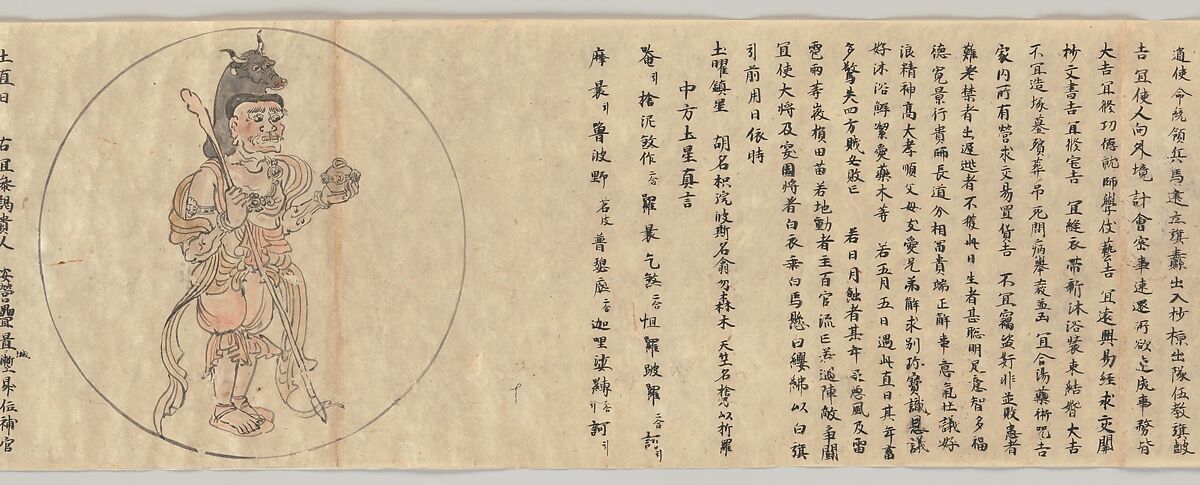 道使命統領兵馬遠立旗纛出入抄掠出隊伍教旗皷
吉宜使人向外境計會密事速還所欲速成事務皆
大吉宜修功德就師學伎藝吉宜遠興易經求交關
抄文書吉宜修宅吉宜縫衣帶新沐浴裝束結婚大吉
不宜造塚墓殯葬弔死問病舉哀並凶宜合湯藥術咒吉
家內所有營求交易買貨吉不宜竊盜奸非並敗患者
難差禁者出遲逃者不獲此日生者甚聰明足意智多福
德寬景行貴師長道分相富貴端正解事意氣杜議好
浪精神高大孝順父母友愛兄弟解求別珍寶識恩議
好沐浴鮮潔愛藥木等 若五月五日遇此直日其年畜
多驚失四方賊必敗亡 若日月蝕者其年足惡風及雷
雹雨等損田苗若地動者主百官流亡若過陣敵爭鬪
宜使大將及宴圍將着白衣乘白馬懸白纓紼以白旗
引前用日依時
土曜鎮星 胡名枳浣波斯名翕勿森末 天竺名捨你以折羅
中方土星真言
唵引捨泥煞作二合羅曩乞煞二合怛羅跛羅二合訶引
摩曩引嚕波野 普瑟底二合迦哩娑縛二合引訶引
土直日 右宜參謁貴人 安營置城